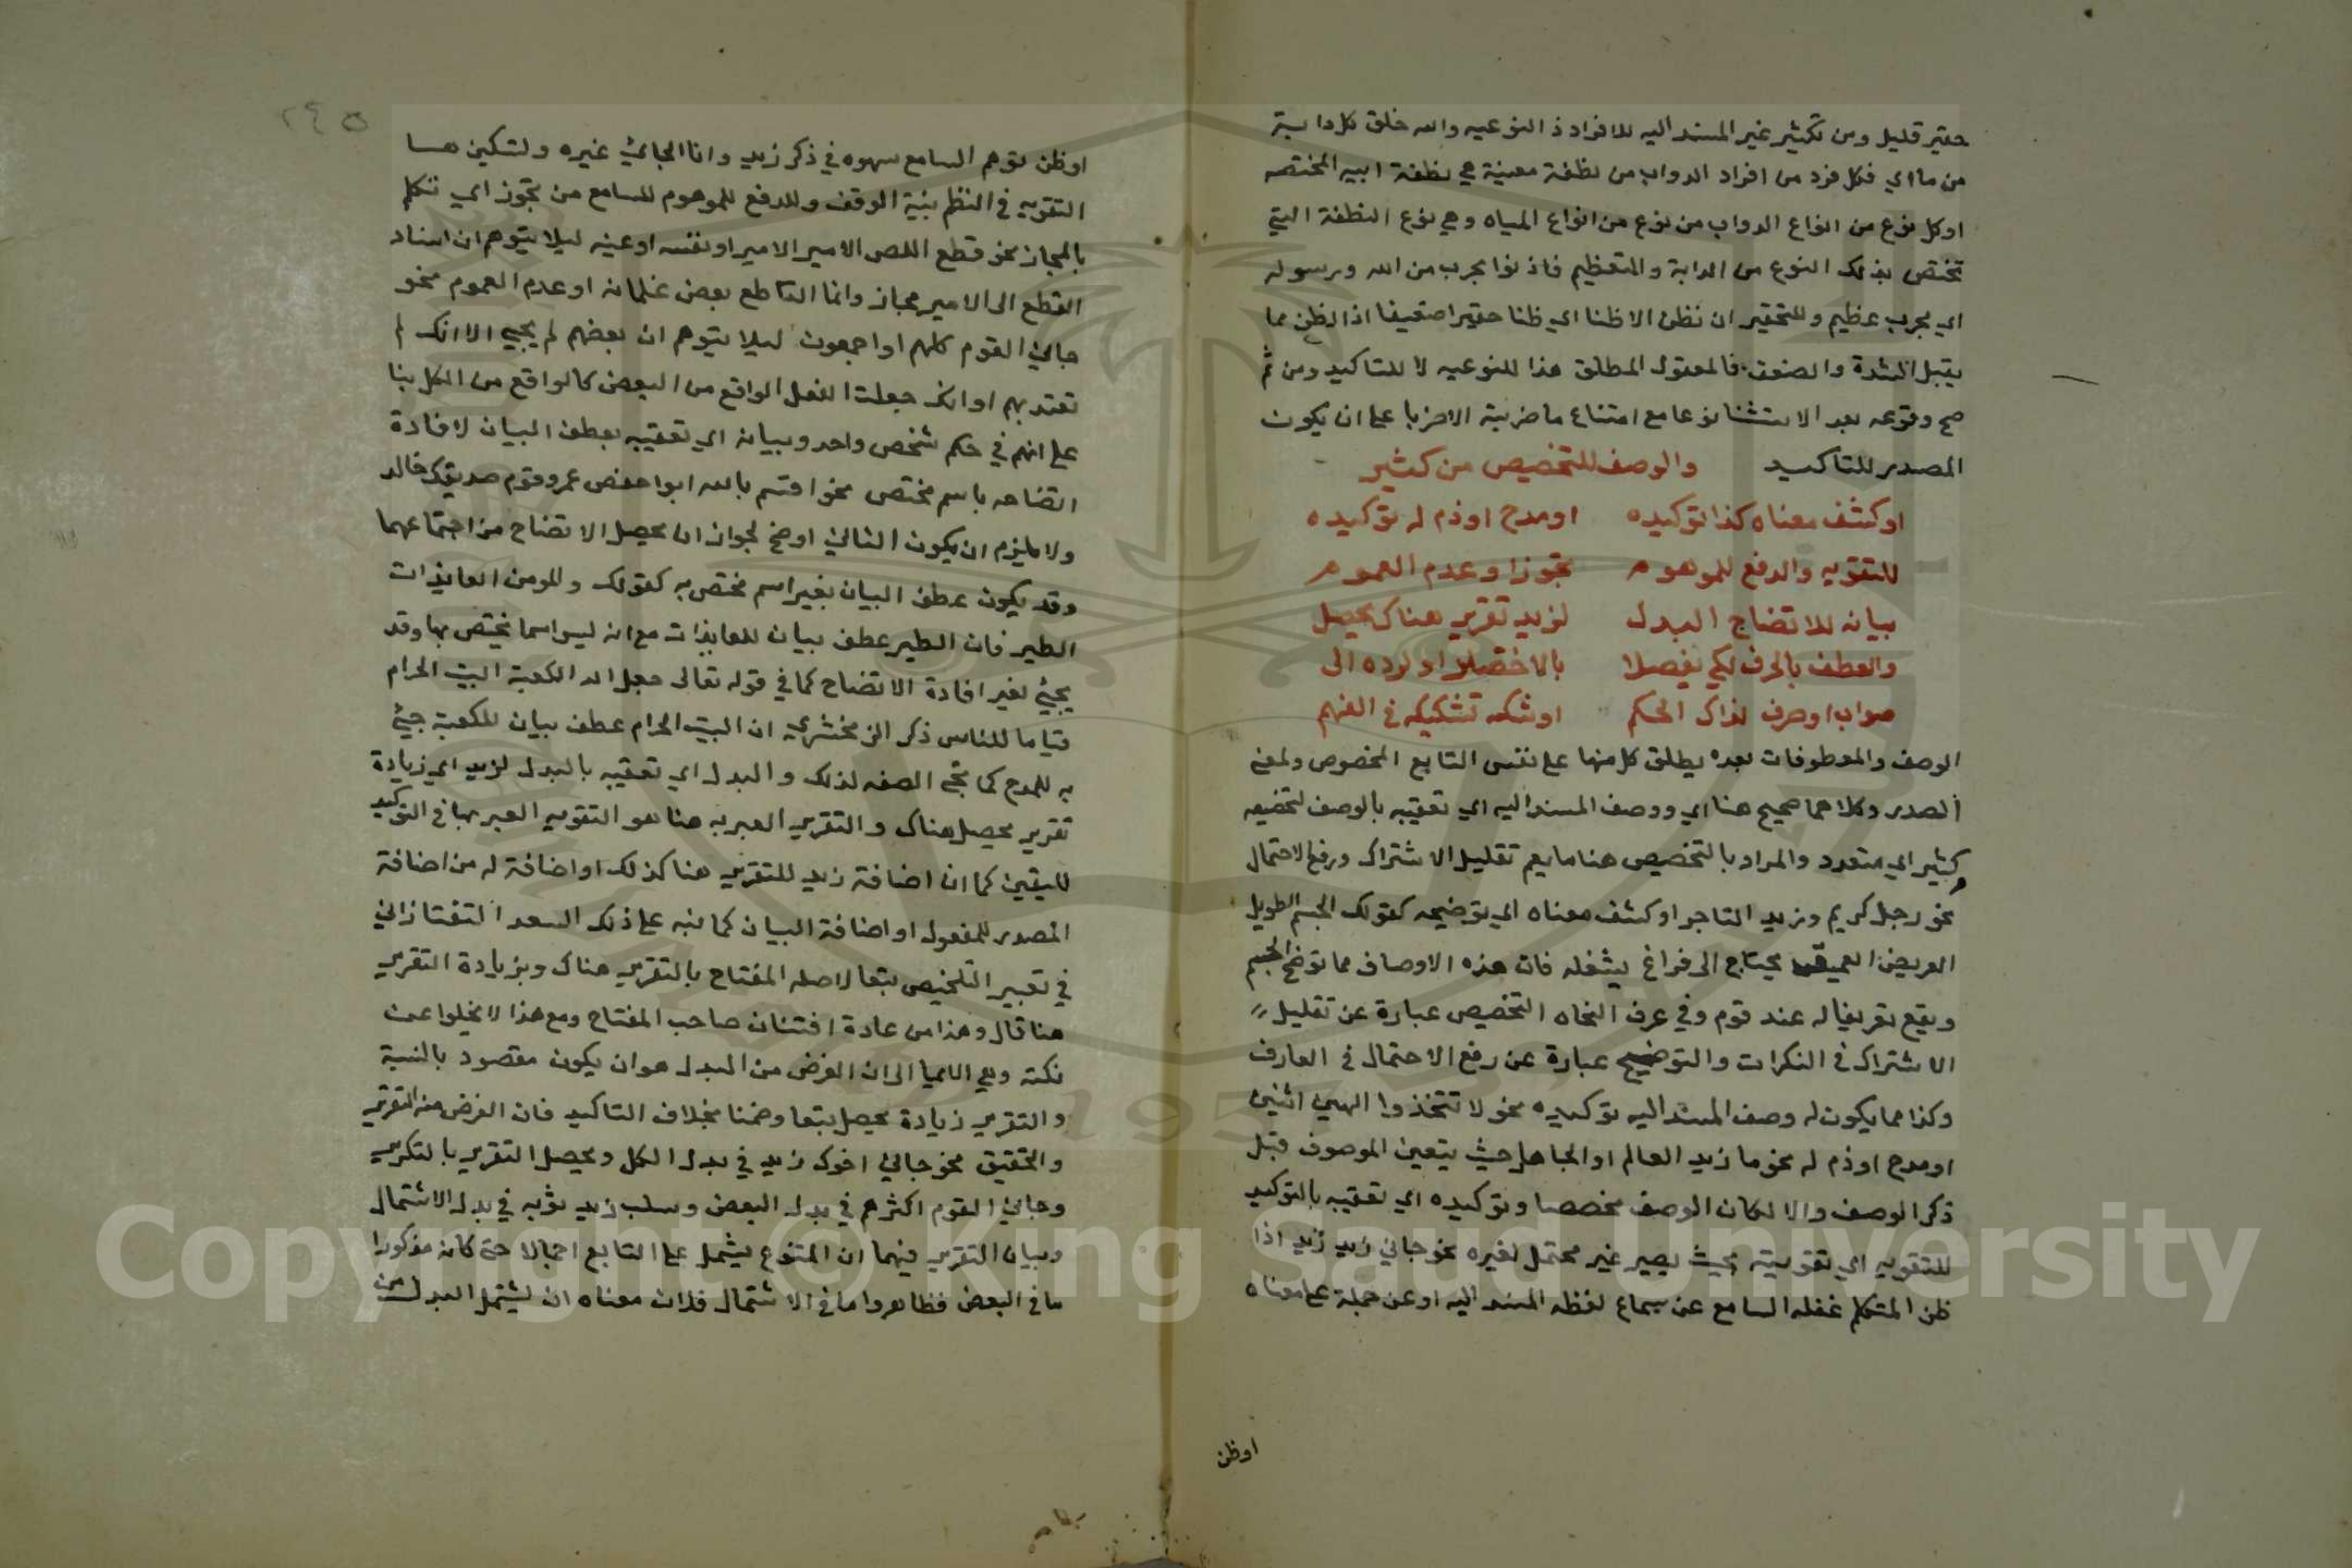 حقير قليل ومن تكثير غير المسند اليه للافراد ذ النوعيه والله خلق كل دابة
من ما اي فكل فرد من افراد الدواب من نطفة معينة هي نطفة ابيه المختصه
او كل نوع من انواع الدواب من نوع من انواع المياه وهي نوع النطفة التي
تختص بذلك النوع من الدابة والتعظيم فاذنوا بحرب من الله ورسوله
اي بحرب عظيم وللتحقير ان نظن الا ظنا اي ظنا حقيرا ضعيفا اذ الظن مما
يقبل الشدة والضعف فالمفعول المطلق هذا للنوعيه لا للتاكيد ومن ثم
صح وقوعه بعد الاستثنا نوعا مع امتناع ما ضربته الا ضربا على ان يكون
المصدر للتاكيد والوصف للتخصيص من كثير
او كشف معناه كذا توكيده او مدح او ذم له توكيده
للتقويه والدفع للموهوم تجوزا وعدم العموم
بيانه للاتضاح البدل لزيد تقرير هناك يحصل
والعطف بالحرف لكي يفصلا بالاختصار او لرده الى
صواب او صرف لذاك الحكم او شكه تشكيكه في الفهم
الوصف والمعطوفات بعده يطلق كل منها على نفس التابع المخصوص ولمعنى
المصدر وكلاهما صحيح هنا اي ووصف المسند اليه اي تعقيبه بالوصف لتخصيصه
كثير اي متعدد والمراد بالتخصيص هنا ما يعم تقليل الاشتراك ورفع الاحتمال
نحو رجل كريم وزيد التاجر او كشف معناه اي توضيحه كقولك الجسم الطويل
العريض العميق يحتاج الى فراغ يشغله فان هذه الاوصاف مما توضح الجسم
ويقع تعريفا له عند قوم وفي عرف النحاه التخصيص عبارة عن تقليل
الاشتراك في النكرات والتوضيح عبارة عن رفع الاحتمال في المعارف
وكذا مما يكون له وصف المسند اليه توكيده نحو لا تتخذوا الهين اثنين
او مدح او ذم له نحو ما زيد العالم او الجاهل حيث يتعين الموصوف قبل
ذكر الوصف والا لكان الوصف مخصصا وتوكيده اي تعقيبه بالتوكيد
للتقويه اي تقويته بحيث يصير غير محتمل لغيره نحو جاني زيد زيد اذا
ظن المتكلم غفله السامع عن سماع لفظه المسند اليه او عن حمله على معناه
اوظن
٢٤٥
او ظن توهم السامع سهوه في ذكر زيد وانا الجائي غيره ولتسكين هسا
التقويه في النظم بنية الوقف وللدفع للموهوم للسامع من تجوز اي تكلم
بالمجاز نحو قطع اللص الامير الامير او نفسه او عينه ليلا يتوهم ان اسناد
القطع الى الامير مجاز وانما القاطع بعض غلمانه او عدم العموم نحو
جاني القوم كلهم او اجمعون ليلا يتوهم ان بعضهم لم يجي الا انك لم
تعتد بهم او انك جعلت الفعل الواقع من البعض كالواقع من الكل بنا
على انهم في حكم شخص واحد وبيانه اي تعقيبه بعطف البيان لافادة
اتضاحه باسم مختص نحو اقسم بالله ابو حفص عمر وقوم صديقك خالد
ولا يلزم ان يكون الثاني اوضح لجواز ان يحصل الاتضاح من اجتماعهما
وقد يكون عطف البيان بغير اسم مختص به كقولك والمومن العايذات
الطير فان الطير عطف بيان للعايذات مع انه ليس اسما يختص بها وقد
يجيئ لغير افادة الاتضاح كما في قوله تعالى جعل الله الكعبة البيت الحرام
قياما للناس ذكر الزمخشري ان البيت الحرام عطف بيان للكعبة جيئ
به للمدح كما تجي الصفه لذلك والبدل اي تعقيبه بالبدل لزيد اي زيادة
تقرير يحصل هناك والتقرير المعبر به هنا هو التقويه المعبر بها في التوكيد
لليقين كما ان اضافة زيد للتقرير هنا كذلك او اضافة له من اضافة
المصدر للمفعول او اضافة البيان كما نبه على ذلك السعد التفتازاني
في تعبير التلخيص تبعا لاصله المفتاح بالتقرير هناك وبزيادة التقرير
هنا قال وهذا من عادة افتنان صاحب المفتاح ومع هذا لا يخلوا عن
نكتة وهي الايما الى ان الغرض من البدل هو ان يكون مقصود بالنسبة
والتقرير زيادة يحصل تبعا وضمنا بخلاف التاكيد فان الغرض منه التقرير
والتحقيق نحو جاني اخوك زيد في بدل الكل ويحصل التقرير بالتكرير
وجاني القوم اكثرهم في بدل البعض وسلب زيد ثوبه في بدل الاشتمال
وبيان التقرير فيهما ان المتبوع يشمل على التابع اجمالا حتى كانه مذكورا
ما في البعض فظاهر واما في الاشتمال فلان معناه ان يشتمل المبدل منه
Copyright © King Saud University